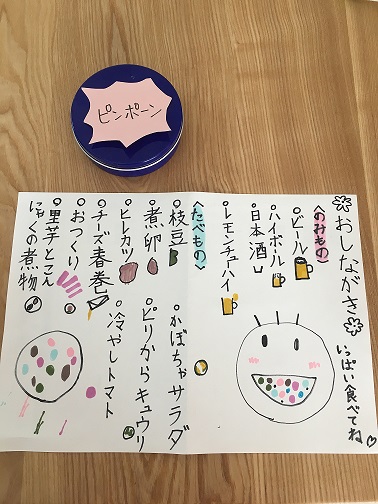 ピンポーン
❊おしながき❊
いっぱい食べてね♡
〈のみもの〉
○ビール
○ハイボール
○日本酒
○レモンチューハイ
〈たべもの〉
○枝豆
○煮卵
○ヒレカツ
○チーズ春巻
○おつくり
○里芋とこん
にゃくの煮物
○かぼちゃサラダ
○ピリからキュウリ
○冷やしトマト